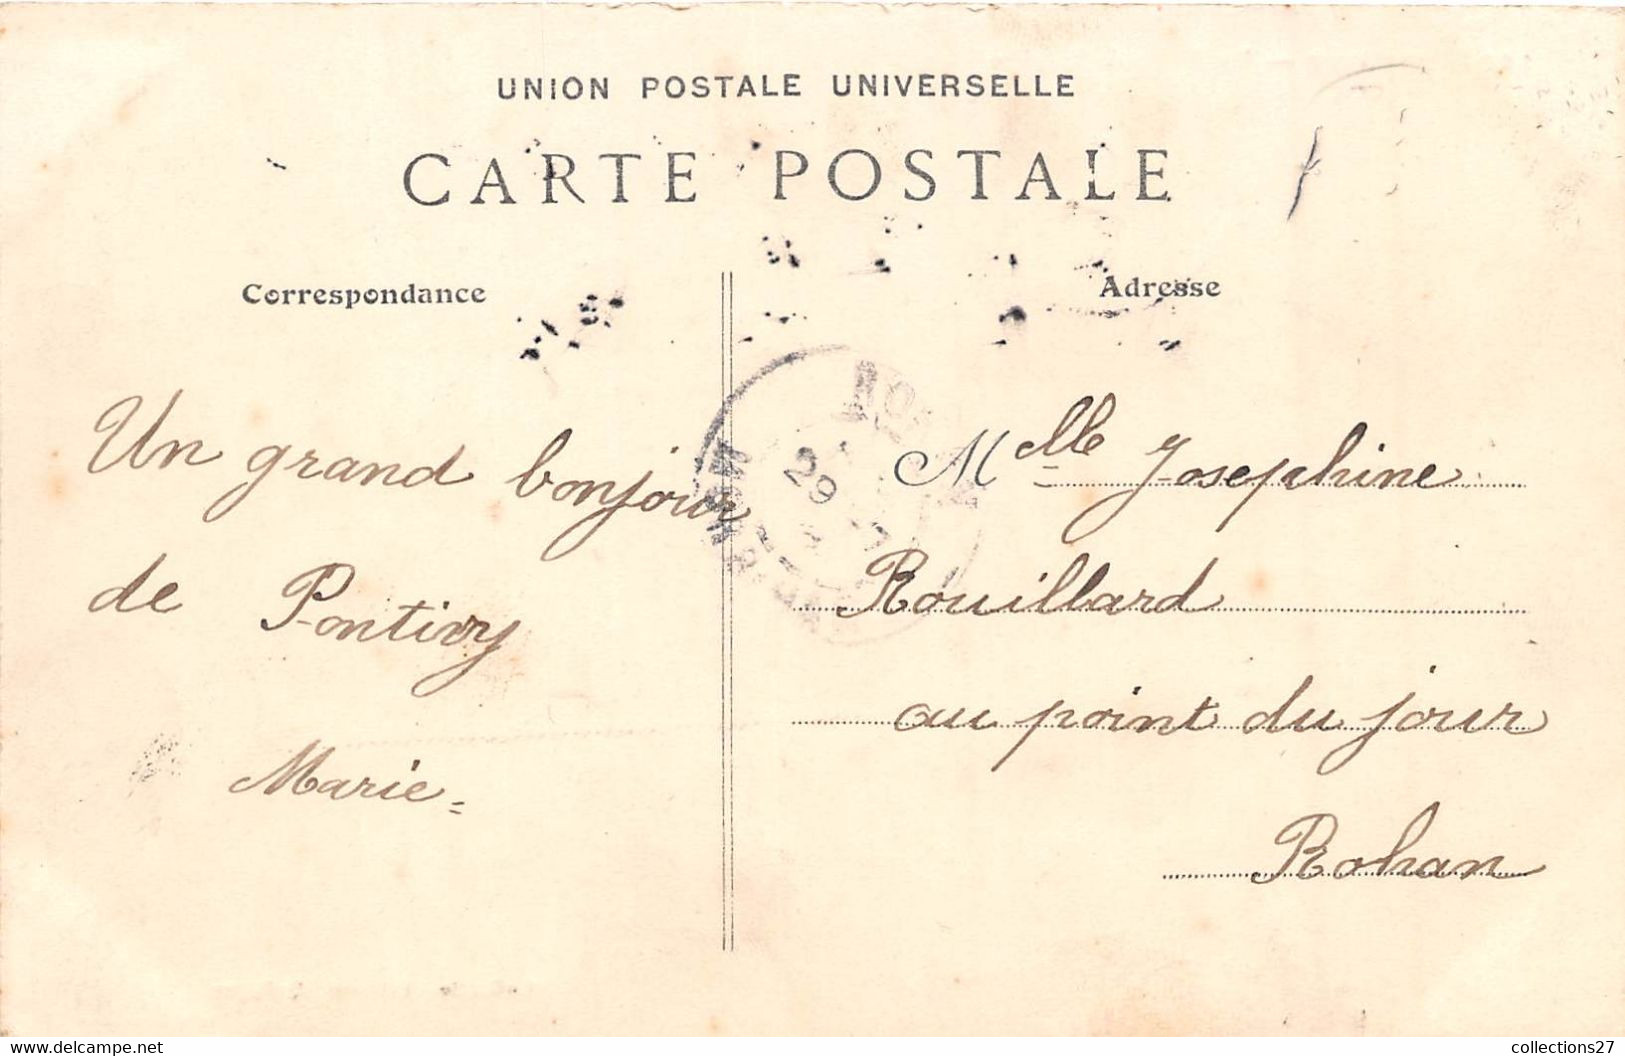 UNION POSTALE UNIVERSELLE
CARTE POSTALE
Correspondance
Adresse
Un grand bonjour
de Pontivy
Marie
Mlle Josephine
Rouillard
au point du jour
Rohan
29
www.delcampe.net
collections27